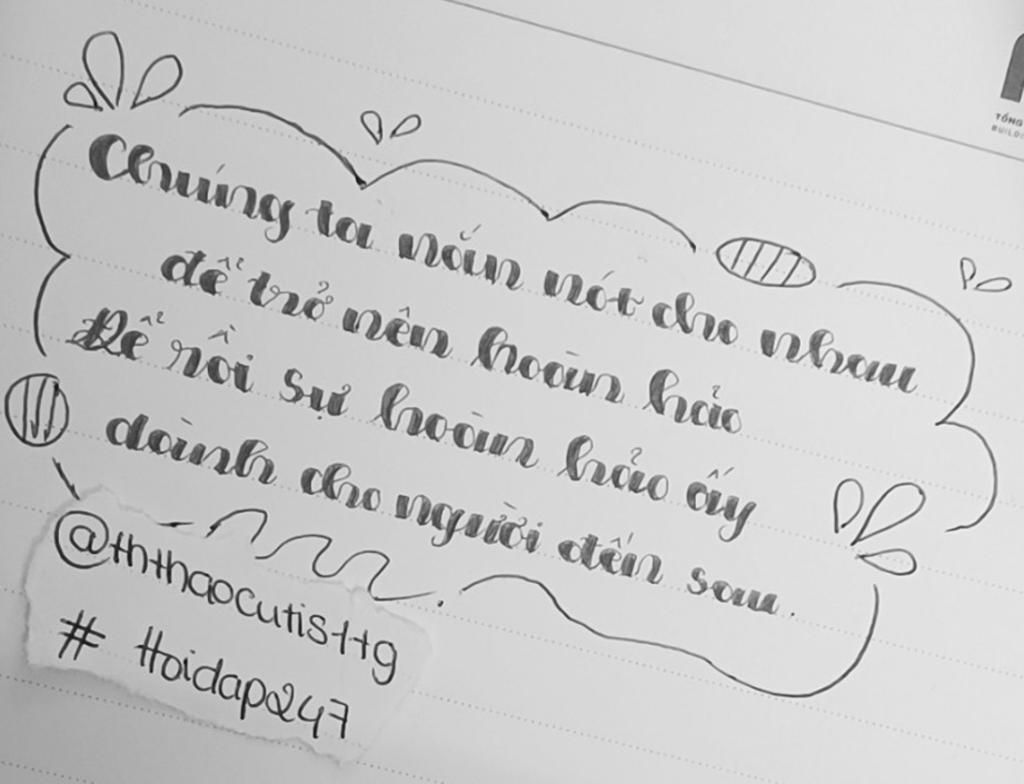 TỔNG
BUILD
Chúng ta nắn nót cho nhau
để trở nên hoàn hảo
Để rồi sự hoàn hảo ấy
dành cho người đến sau.
@ththaocutis1tg
# Hoidap247